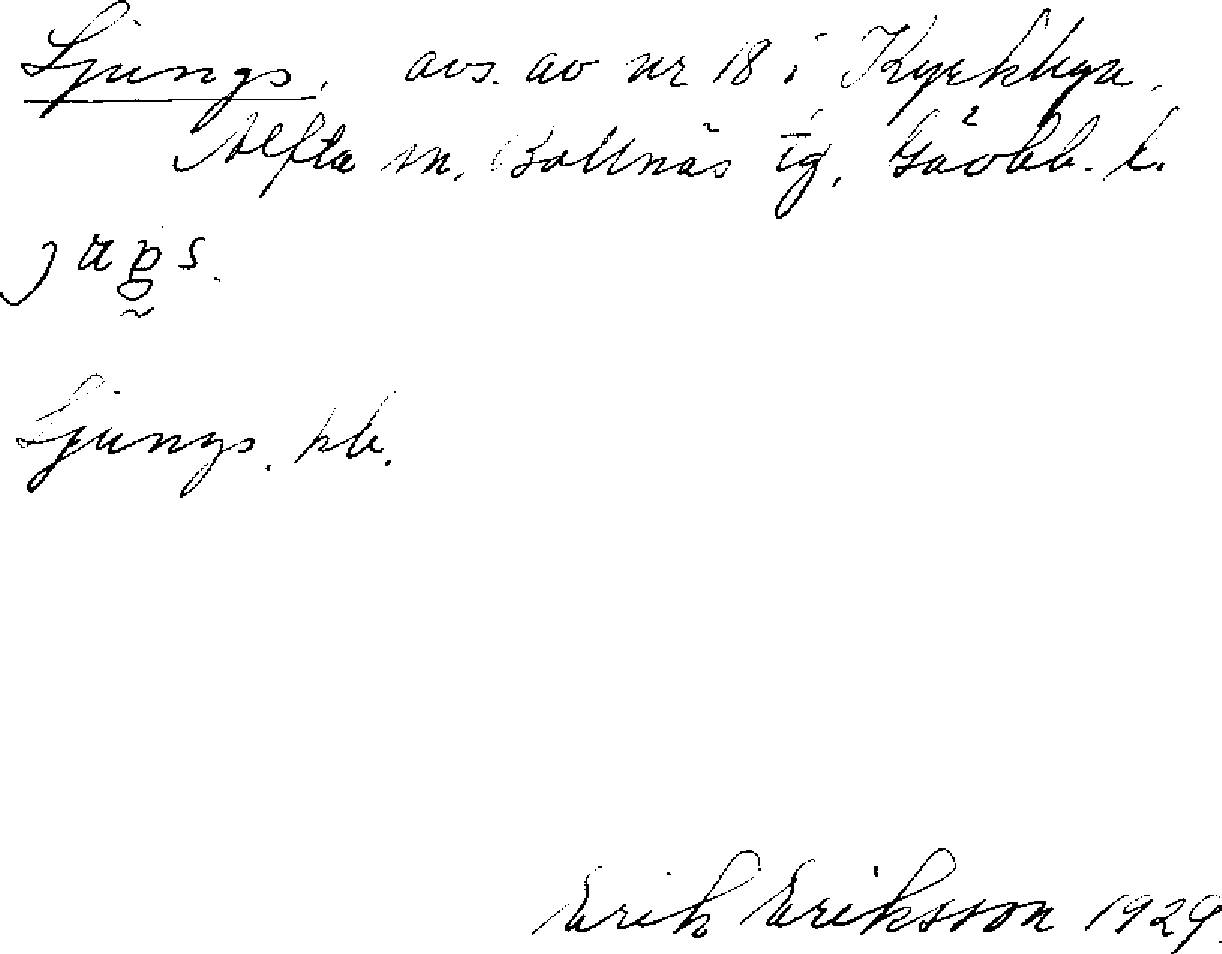 Ljungs, avs. av nr 18 i Kyrkbyn,
Alfta sn, Bollnäs tg, Gävleb. l.
Ljungs. kb.
Erik Eriksson 1929.